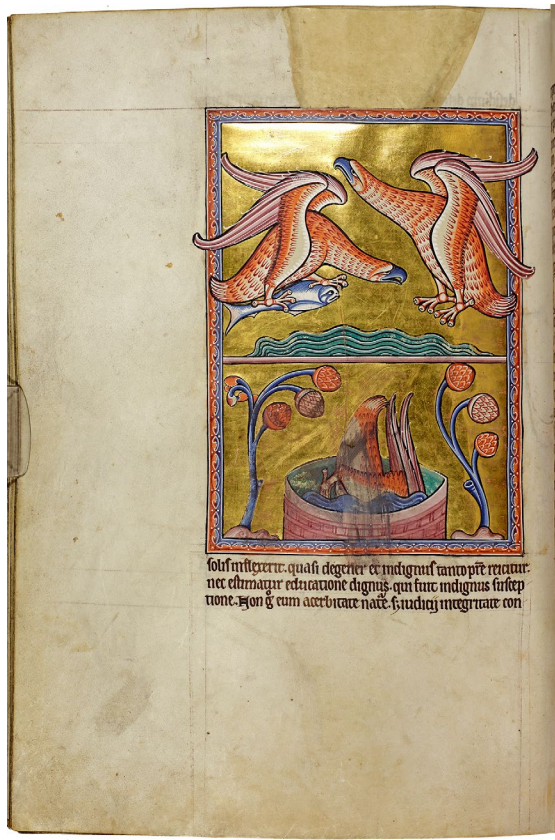 solis inflexerit. quasi degener et indignus tanto pr̄e reicitur.
nec estimatur educatione dignus. qui fuit indignus suscep
tione. Non g̊ eum acerbitate nat̄e. s; iudicij integritate con